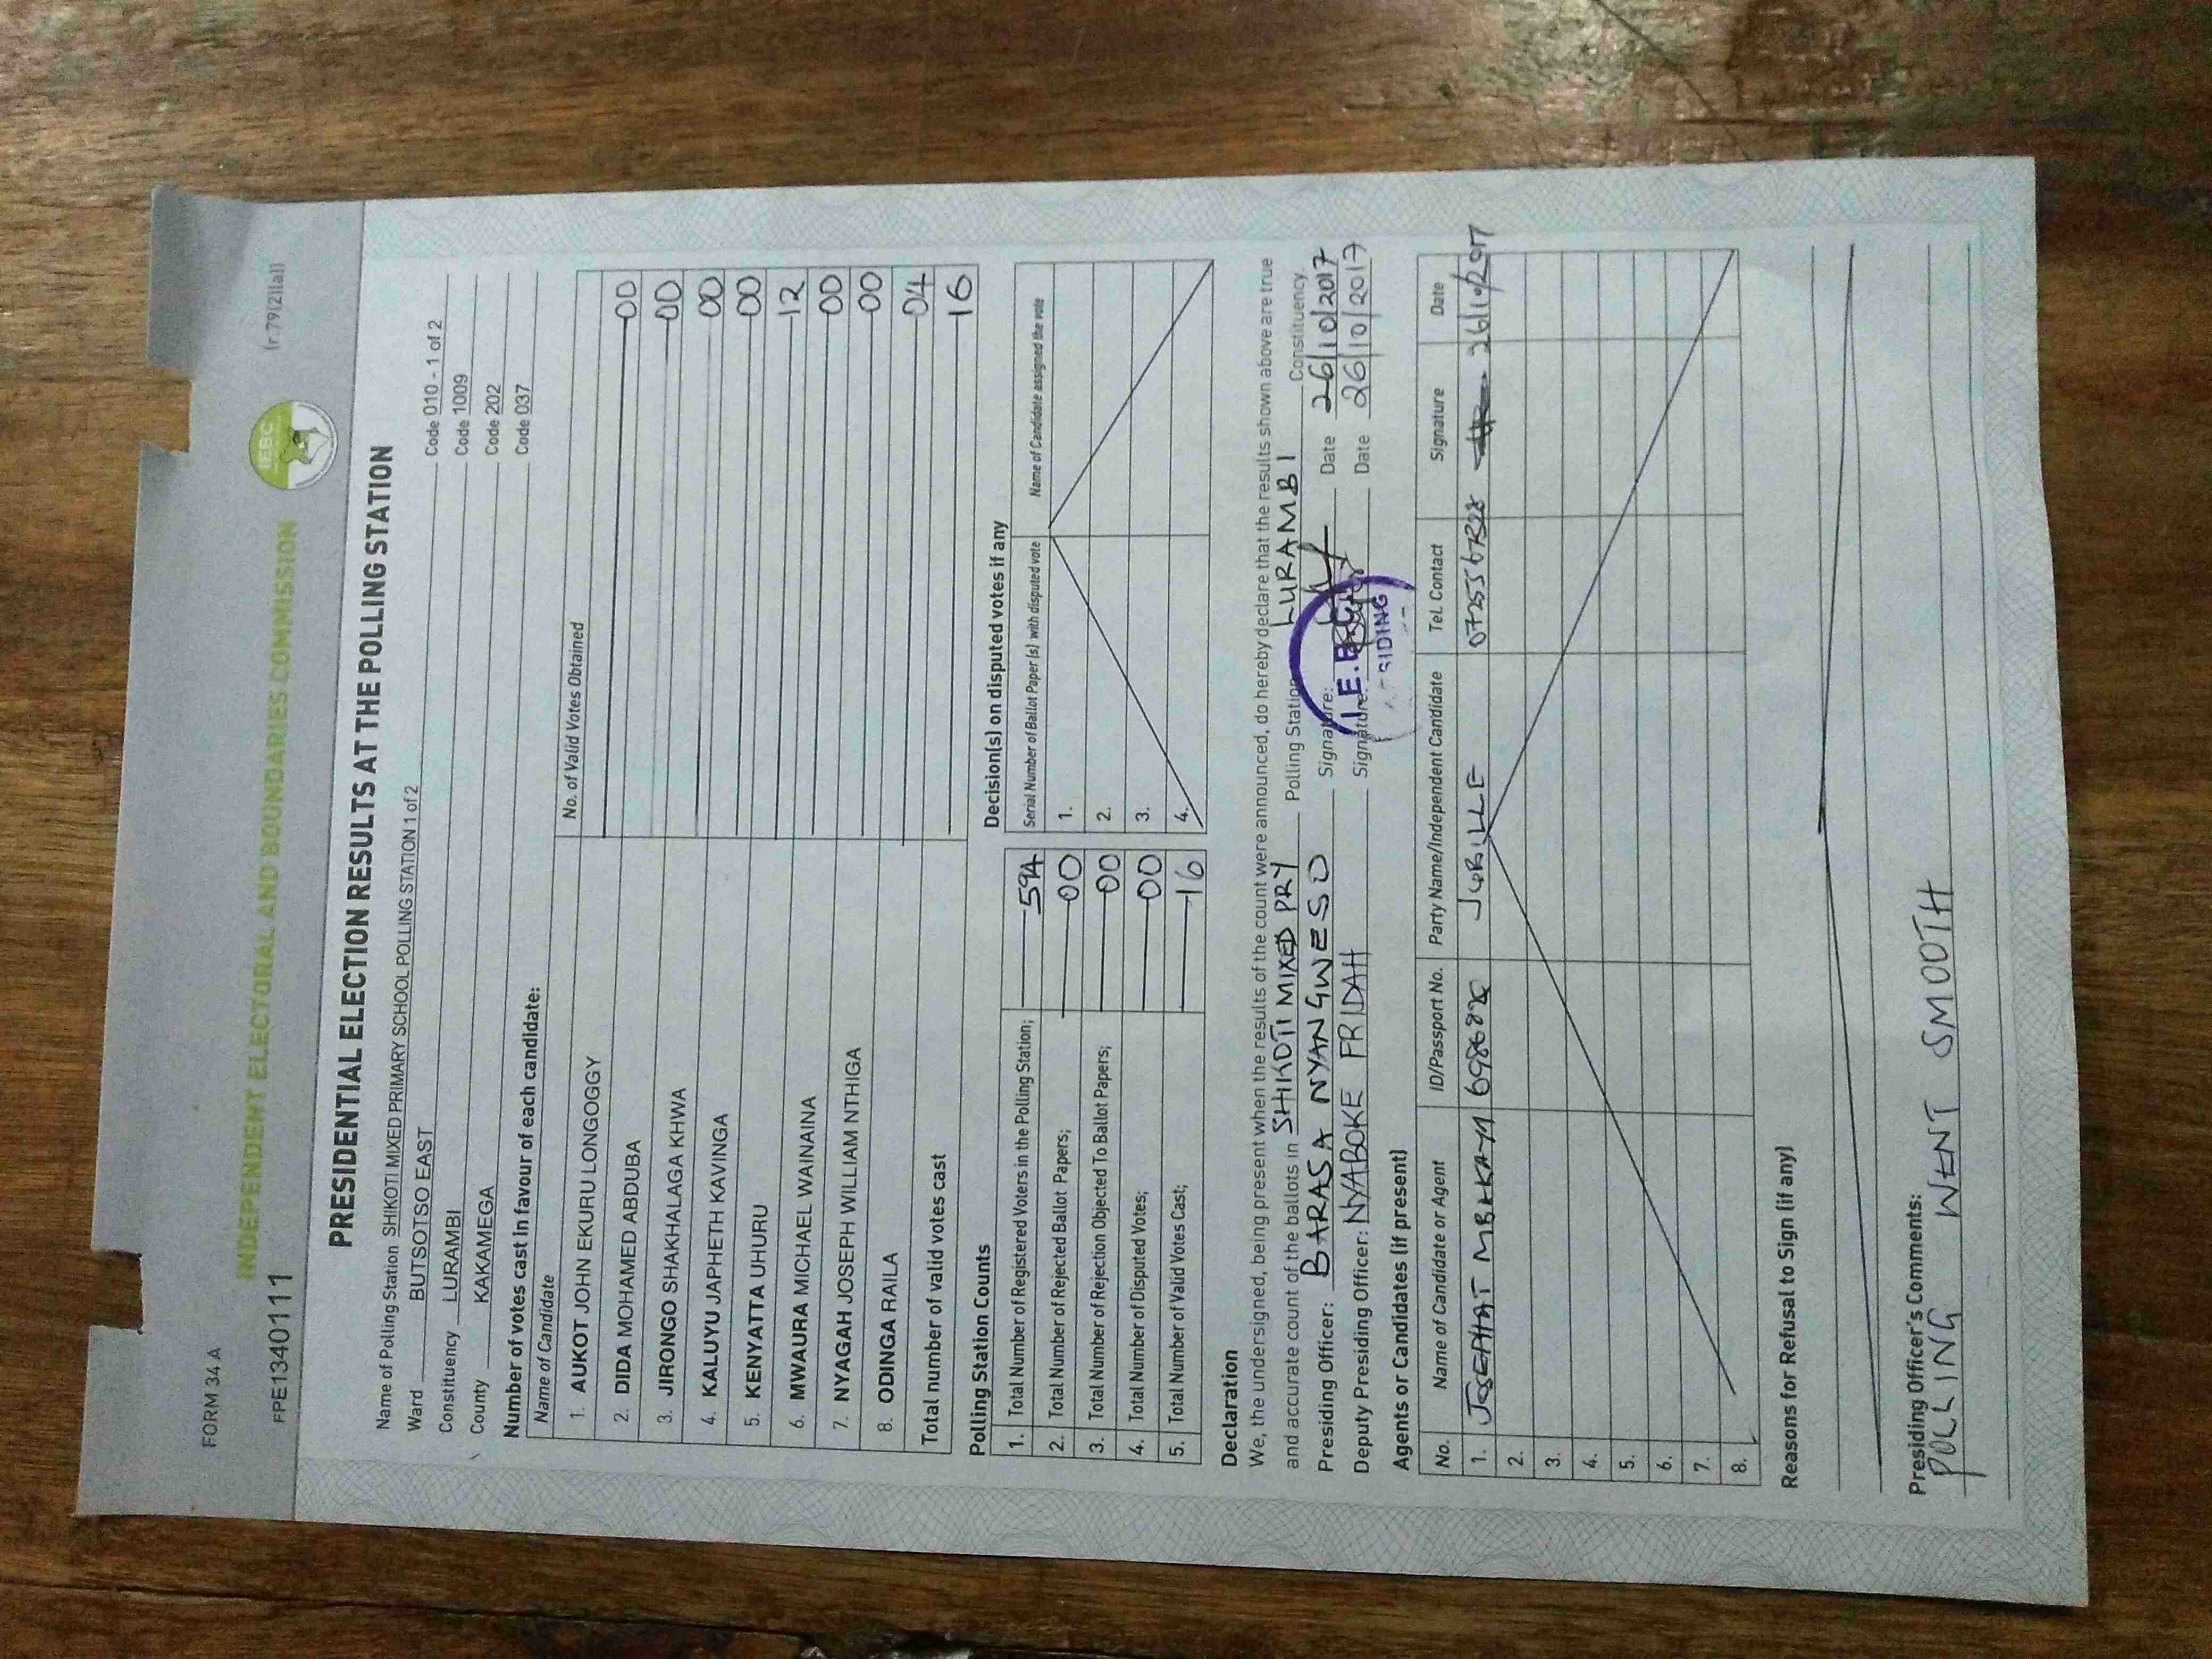 FORM 34 A
(r 79(2)(a))
INDEPENDENT ELECTORAL AND BOUNDARIES COMMISSION
IEBC
FPE1340111
PRESIDENTIAL ELECTION RESULTS AT THE POLLING STATION
Name of Polling Station SHIKOTI MIXED PRIMARY SCHOOL POLLING STATION 1 of 2 Code 010 - 1 of 2
Ward BUTSOTSO EAST Code 1009
Constituency LURAMBI Code 202
County KAKAMEGA Code 037
Number of votes cast in favour of each candidate:
Name of Candidate No. of Valid Votes Obtained
1. AUKOT JOHN EKURU LONGOGGY 00
2. DIDA MOHAMED ABDUBA 00
3. JIRONGO SHAKHALAGA KHWA 00
4. KALUYU JAPHETH KAVINGA 00
5. KENYATTA UHURU 12
6. MWAURA MICHAEL WAINAINA 00
7. NYAGAH JOSEPH WILLIAM NTHIGA 00
8. ODINGA RAILA 04
Total number of valid votes cast 16
Polling Station Counts
1. Total Number of Registered Voters in the Polling Station; 594
2. Total Number of Rejected Ballot Papers; 00
3. Total Number of Rejection Objected To Ballot Papers; 00
4. Total Number of Disputed Votes; 00
5. Total Number of Valid Votes Cast; 16
Decision(s) on disputed votes if any
Serial Number of Ballot Paper (s) with disputed vote Name of Candidate assigned the vote
1.
2.
3.
4.
Declaration
We, the undersigned, being present when the results of the count were announced, do hereby declare that the results shown above are true
and accurate count of the ballots in SHIKOTI MIXED PRY Polling Station LURAMBI Constituency.
Presiding Officer: BARASA NYANGWESO Signature: Date 26/10/2017
Deputy Presiding Officer: NYABOKE FRIDAH Signature: Date 26/10/2017
I.E.B.C
SIDING
Agents or Candidates (if present)
No. Name of Candidate or Agent ID/Passport No. Party Name/Independent Candidate Tel. Contact Signature Date
1. JOSEPHAT 26/10/2017
2.
3.
4.
5.
6.
7.
8.
Reasons for Refusal to Sign (if any)
Presiding Officer's Comments:
POLLING WENT SMOOTH